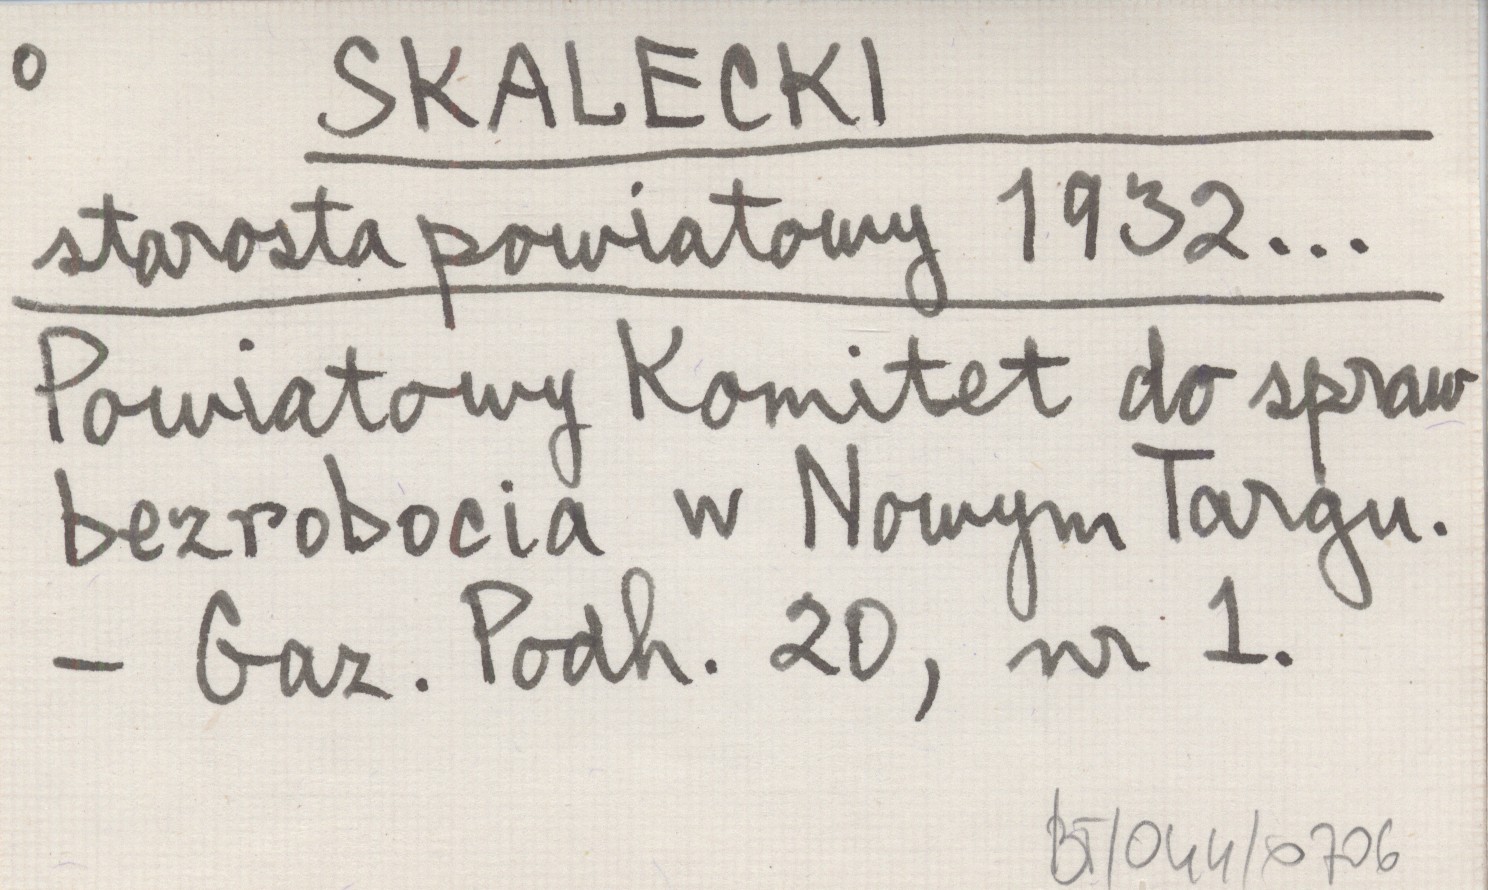 o SKALECKI
starosta powiatowy 1932...
Powiatowy Komitet do spraw
bezrobocia w Nowym Targu.
– Gaz. Podh. 20, nr 1.
BT/044/8706